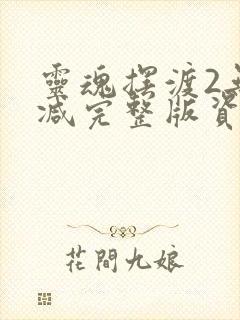 靈魂摆渡2
减完整版資
花間九娘